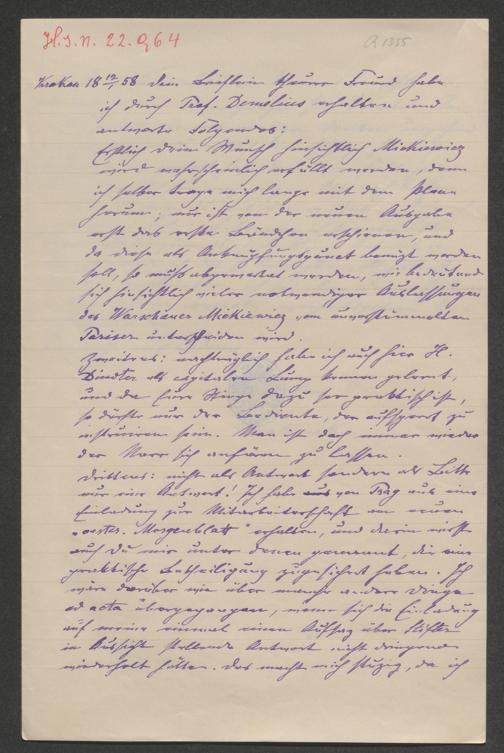 H.I.N. 22.964
Krakau 18 12/1 58 Dein Brieflein theurer Freund habe
ich durch Prof. Demelius erhalten und
antworte Folgendes:
Erstlich Dein Wunsch hinsichtlich Mickiewicz
wird wahrscheinlich erfüllt werden, denn
ich selber trage mich lange mit dem Plane
herum; nur ist von der neuen Ausgabe
erst das erste Bändchen erschienen, und
da diese als Anknüpfungspunct benüzt werden
soll, so muß abgewartet werden, wie bedeutend
sich hinsichtlich vieler notwendiger Auslassungen
der Warschauer Mickiewicz vom unverstümmelten
Pariser unterscheiden wird.
Zweitens: nachträglich habe ich auch hier H.
als capitalen Lump kennen gelernt,
und da Eure dazu sehr praktisch ist,
so dürfte nur der Bediente, der aufsperrt zu
instruiren sein. Man ist doch immer wieder
der Narr sich anführen zu lassen.
Drittens: nicht als Antwort sondern als Bitte
um eine Antwort! Ich habe von Prag aus eine
Einladung zur Mitarbeiterschaft am neuen
"oester. Morgenblatt" erhalten, und darin
auch Du mir unter denen genannt, die eine
praktische Betheiligung zugesichert haben. Ich
wäre darüber wie über manche andere Dinge
ad acta übergegangen, wenn sich die Einladung
auf meine einmal einen Aufsaz über Stifter
in Aussicht stellende Antwort nicht dringend
wiederholt hätte. Das macht mich stuzig, da ich